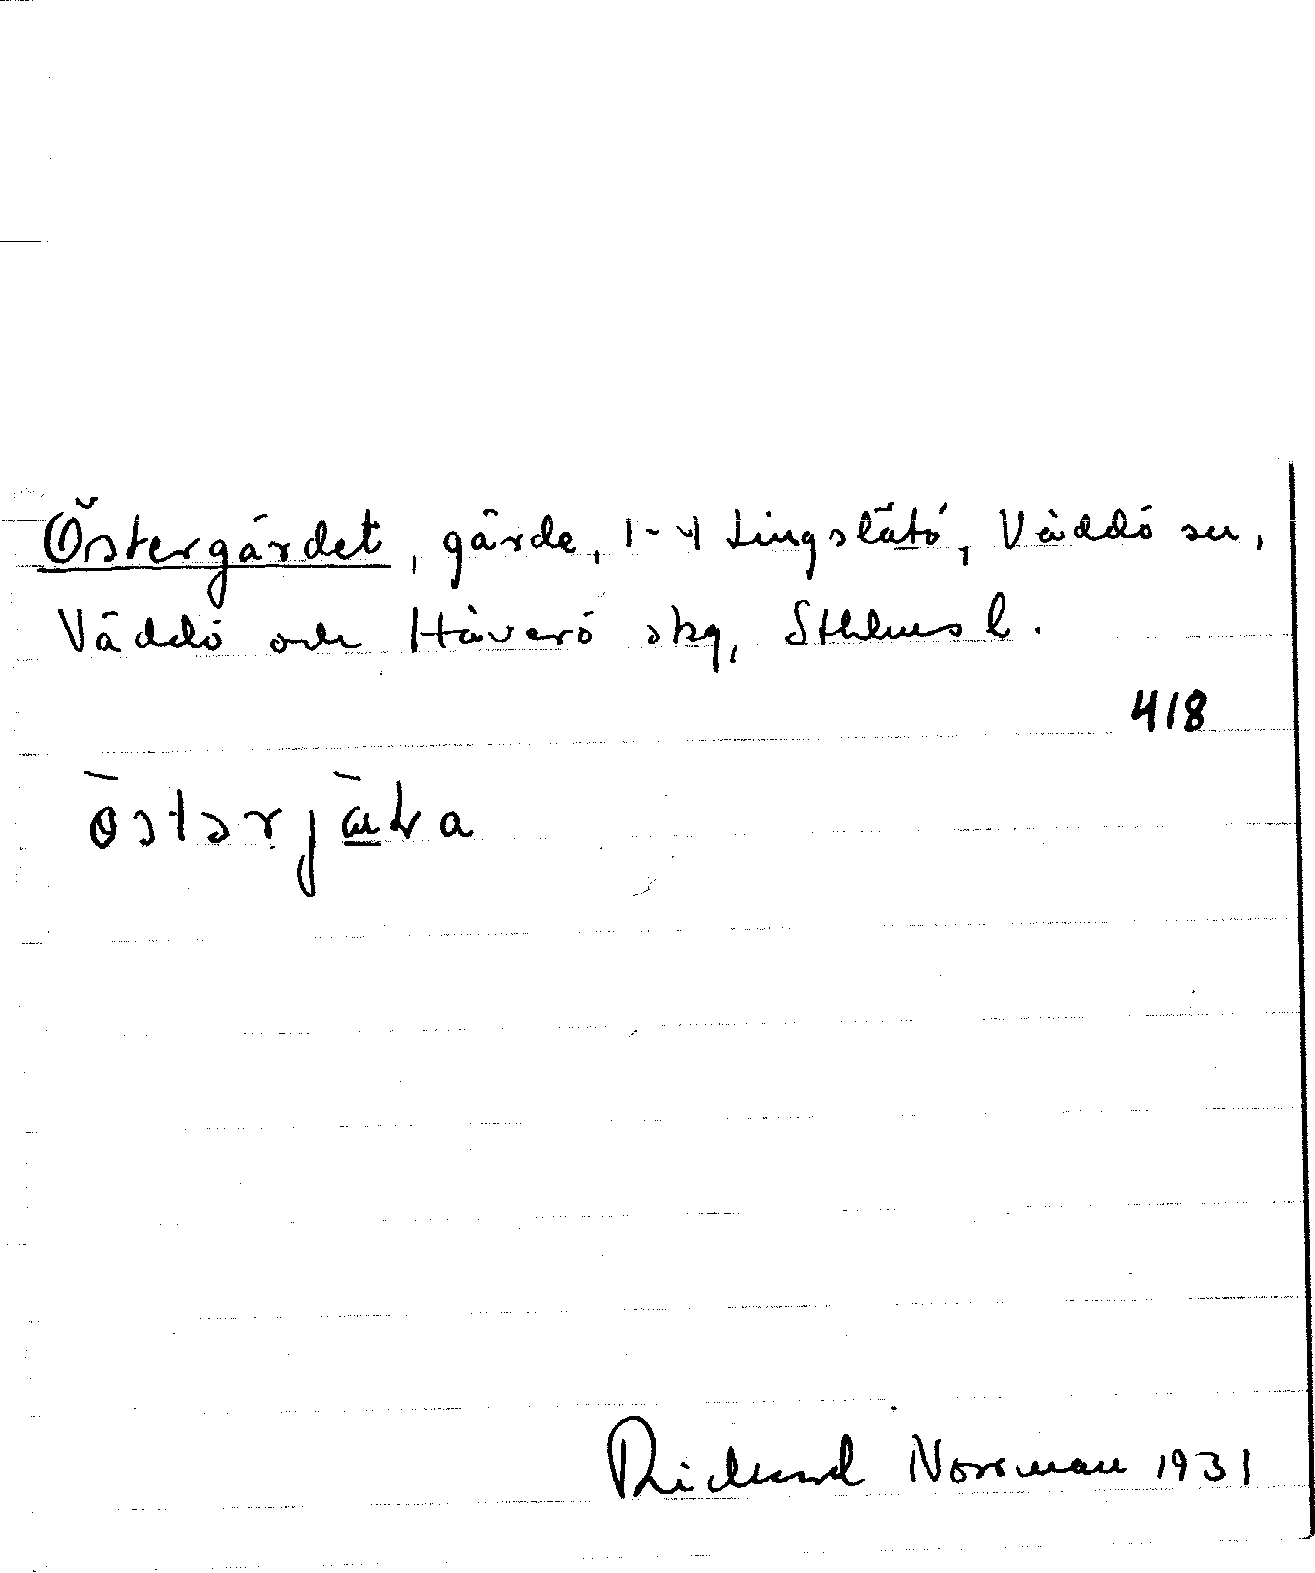 Östergärdet, gärde, 1-4 Tingslätö, Väddö sn,
Väddö och Häverö skg, Sthlms l.
418
östərjæ̲ɽa
Rickard Norrman 1931